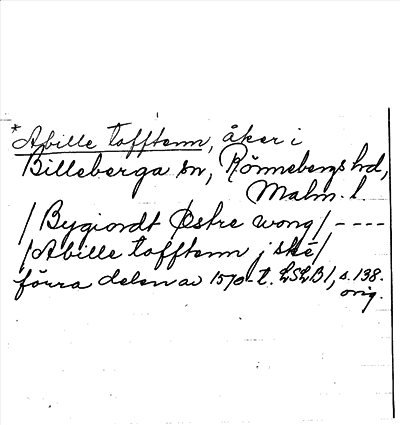 *Abille tofftenn, åker i
Billeberga sn, Rönnebergs hd,
Malm. l
/ Bygiordt Østre wong / ----
/ Abille tofftenn j ské /
förra delen av 1570-t. LSLB 1, s. 138.
orig.